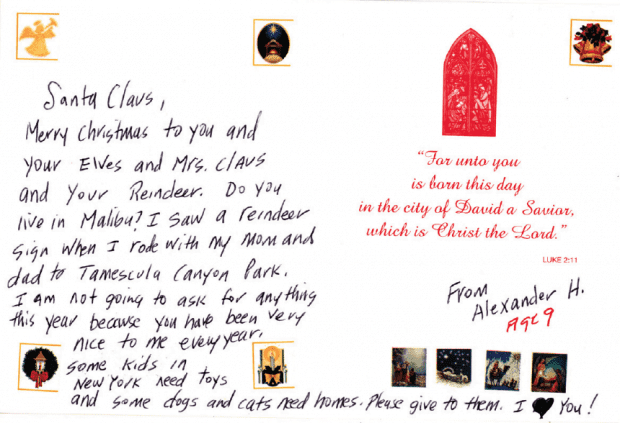 Santa Claus,
Merry Christmas to you and
your Elves and Mrs. Claus
and Your Reindeer. Do you
live in Malibu? I saw a reindeer
sign when I rode with my mom and
dad to Tamescula Canyon Park.
I am not going to ask for anything
this year because you have been very
nice to me every year.
some kids in
New York need toys
and some dogs and cats need homes. Please give to them. I ♥ you!
"For unto you
is born this day
in the city of David a Savior,
which is Christ the Lord."
LUKE 2:11
From
Alexander H.
Age 9